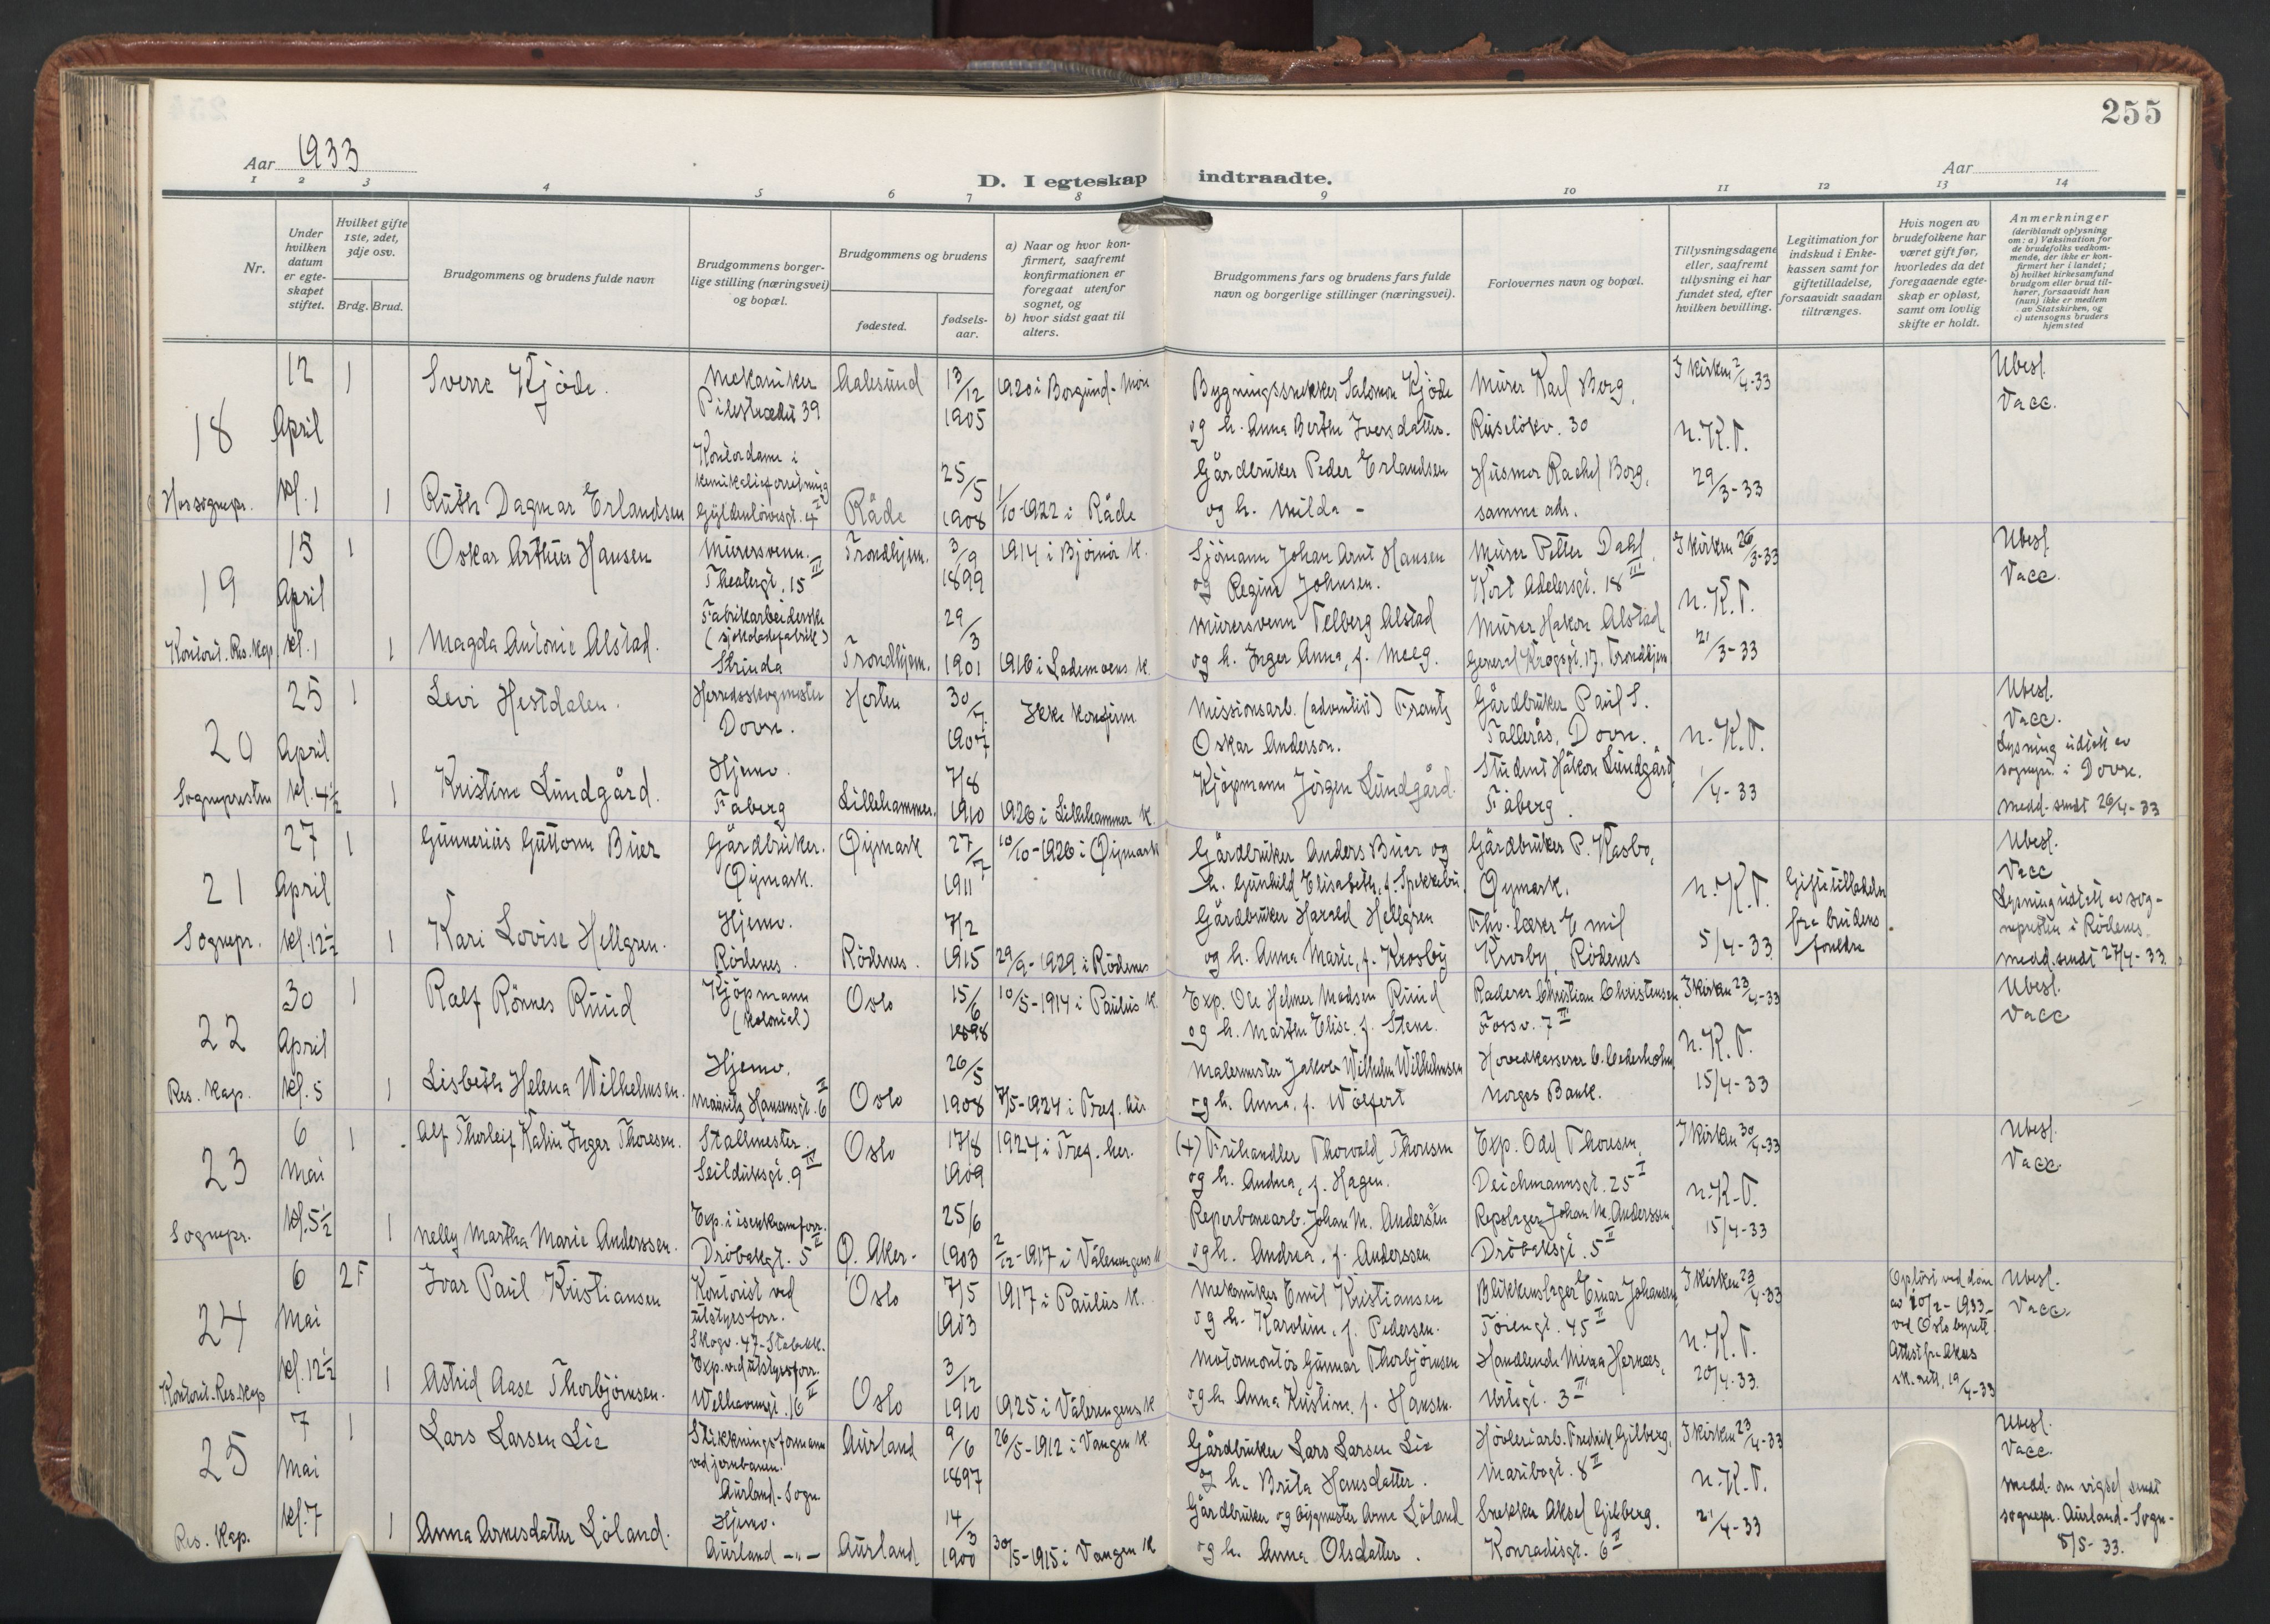 255
Aar 1933
D. I egteskap indtraadte.
Aar
1 2 3 4 5 6 7 8 9 10 11 12 13 14
Nr.
Under hvilken datum er egteskapet stiftet.
Hvilket gifte 1ste, 2det, 3dje osv.
Brdg. Brud.
Brudgommens og brudens fulde navn
Brudgommens borgerlige stilling (næringsvei) og bopæl.
Brudgommens og brudens
fødested.
fødselsaar.
a) Naar og hvor konfirmert, saafremt konfirmationen er foregaat utenfor sognet, og
b) hvor sidst gaat til alters.
Brudgommens fars og brudens fars fulde navn og borgerlige stillinger (næringsvei).
Forlovernes navn og bopæl.
Tillysningsdagene eller, saafremt tillysning ei har fundet sted, efter hvilken bevilling.
Legitimation for indskud i Enkekassen samt for giftetilladelse, forsaavidt saadan tiltrænges.
Hvis nogen av brudefolkene har været gift før, hvorledes da det foregaaende egteskap er opløst, samt om lovlig skifte er holdt.
Anmerkninger
(deriblandt oplysning om: a) Vaksination for de brudefolks vedkommende, der ikke er konfirmert her i landet; b) hvilket kirkesamfund brudgom eller brud tilhører, forsaavidt han (hun) ikke er medlem av Statskirken, og c) utensogns bruders hjemsted
18
12 April kl. 1
1 Sverre Kjöde.
Mekaniker
Pilestrædet 39
Aalesund
13/12 1905
1920 i Borgund - Möre
Bygningssnekker Salomon Kjöde
og h. Anna Berthe Iversdatter.
Murer Karl Borg,
Ruselökv. 30
I kirken 2/4-33
N.K.T.
29/3-33
Ubesl.
Vacc.
1 Ruth Dagmar Erlandsen
Kontordame i
kemikalieforretning
Gyldenlövesgt. 4
Råde
25/5 1908
1/10-1922 i Råde
Gårdbruker Peder Erlandsen
og h. Milda -
Husmor Rachel Borg,
samme adr.
19
15 April kl. 1
1 Oskar Arthur Hansen
Murersvenn.
Theatergt. 15 III
Trondhjem.
3/9 1899
1914 i Björnör K.
Sjömann Johan Arnt Hansen
og Regine Johnsen.
Murer Petter Dahl,
Kort Adelersgt. 18 III
I kirken 26/3-33
N.K.T.
21/3-33
Ubesl.
Vacc.
Kontorit. Res. Kap.
1 Magda Antonie Alstad.
Fabrikarbeiderske
(sjokoladefabrik)
Strinda
Trondhjem.
29/3 1901
1916 i Lademoens K.
Murersvenn Telberg Alstad
og h. Inger Anna, f. Meeg.
Murer Hakon Alstad
General Krogsgt. 17. Trondhjem
20
25 April kl. 4½
1 Levi Hestdalen.
Herredsskogmester
Dovre.
Horten
30/7. 1907
Ikke konfirm.
Missionsarb. (adventist) Frantz
Oskar Anderson.
Gårdbruker Paul S.
Tallerås, Dovre.
N.K.T.
1/4-33
Ubesl.
Vacc.
Lysning utstett av
sognepr. i Dovre.
Medd. sendt 26/4-33
Sognepresten
1 Kristine Lundgård.
Hjemv.
Fåberg
Lillehammer.
7/8 1910
1926 i Lillehammer K.
Kjöpmann Jörgen Lundgård.
Student Håkon Lundgård,
Fåberg.
21
27 April kl. 12½
1 Gunnerius Guttorm Buer
Gårdbruker.
Öymark.
Öymark
27/12 1911
10/10-1926 i Öymark
Gårdbruker Anders Buer og
h. Gunhild Elisabeth, f. Spekkebu.
Gårdbruker P. Kasbo,
Öymark.
N.K.T.
5/4-33
Giftetilladelse
fra brudens
foreldre
Ubesl.
Vacc
Lysning utstett av sog-
nepresten i Rödenes
medd. sendt 27/4-33.
Sognepr.
1 Kari Lovise Hellgren.
Hjemv.
Rödenes.
Rödenes.
7/2 1915
29/9-1929 i Rödenes
Gårdbruker Harald Hellgren
og h. Anna Marie, f. Krosby
Fhv. lærer Emil
Krosby, Rödenes
22
30 April kl. 5
1 Ralf Rönnes Ruud
Kjöpmann
(kolonial)
Oslo
15/6 1898
10/5-1914 i Paulus K.
Exp. Ole Helmer Madsen Ruud
og h. Marthe Elise, f. Stene.
Raderer Christian Christensen,
Fossv. 7 II
I kirken 23/4-33
N.K.T.
15/4-33
Ubesl.
Vacc
Res. Kap.
1 Lisbeth Helena Wilhelmsen.
Hjemv.
Mauritz Hansensgt. 6 II
Oslo
26/5 1908
7/5-1924 i Tref. kir.
Malermester Jakob Wilhelm Wilhelmsen
og h. Anna, f. Wölfert
Hovedkasserer C. Cederholm
Norges Bank.
23
6 Mai kl. 5½
1 Alf Thorleif Kahn Inger Thoresen.
Stallmester.
Seilduksgt. 9 IV
Oslo
17/8 1909
1924 i Tref. her.
(+) Frihandler Thorvald Thoresen
og h. Andrea, f. Hagen.
Exp. Odd Thoresen,
Deichmannsgt. 25 I
I kirken 30/4-33
N.K.T.
15/4-33
Ubesl.
Vacc.
Sognepr.
1 Nelly Martha Marie Anderssen.
Exp. i isenkramforr.
Dröbaksgt. 5 II
Ö. Aker-
25/6 1903
2/12-1917 i Vålerengens K
Reperbanearb. Johan M. Andersen
og h. Andrea, f. Anderssen
Repslager Johan M. Anderssen,
Dröbaksgt. 5 II
24
6 Mai kl. 12½
2F Ivar Paul Kristiansen
Kontorist ved
utstyrsforr.
Skogv. 47 - Stabekk.
Oslo
7/5 1903
1917 i Paulus K.
Mekaniker Emil Kristiansen
og h. Karoline, f. Pedersen.
Blikkenslager Einar Johansen,
Töiengt. 45 II
I kirken 23/4-33
N.K.T.
20/4-33.
Oplöst ved dom
av 20/2-1933
ved Oslo byrett
Attest fra Akers
sk. rett, 19/4-33
Ubesl.
Vacc.
Kontorit. Res. Kap
1 Astrid Aase Thorbjörnsen.
Exp. ved utstyrsforr.
Welhavensgt. 16 II
Oslo
3/12 1910
1925 i Vålerengens K
Motormontör Gunnar Thorbjörnsen
og h. Anna Kristine, f. Hansen.
Handlende Mirra Hernæs,
Urtegt. 3 III
25
7 Mai kl. 7
1 Lars Larsen Lie
Stikkningsformann
ved jernbanen.
Aurland - Sogn
Aurland
9/6 1897
26/5-1912 i Vangen K.
Gårdbruker Lars Larsen Lie
og h. Brita Hansdatter.
Hövleriarb. Fredrik Gilberg,
Maribogt. 8 II
I kirken 23/4-33
N.K.T.
21/4-33
Ubesl.
Vacc.
Medd. om vigsel sendt
sognepr. Aurland - Sogn-
8/5-33.
Res. Kap.
1 Anna Arnesdatter Löland.
Hjemv.
Aurland -"-
Aurland
14/3 1900
30/5-1915 i Vangen K
Gårdbruker og bygmester Arne Löland
og h. Anna Olsdatter.
Snekker Aksel Gilberg,
Konradisgt. 6 II